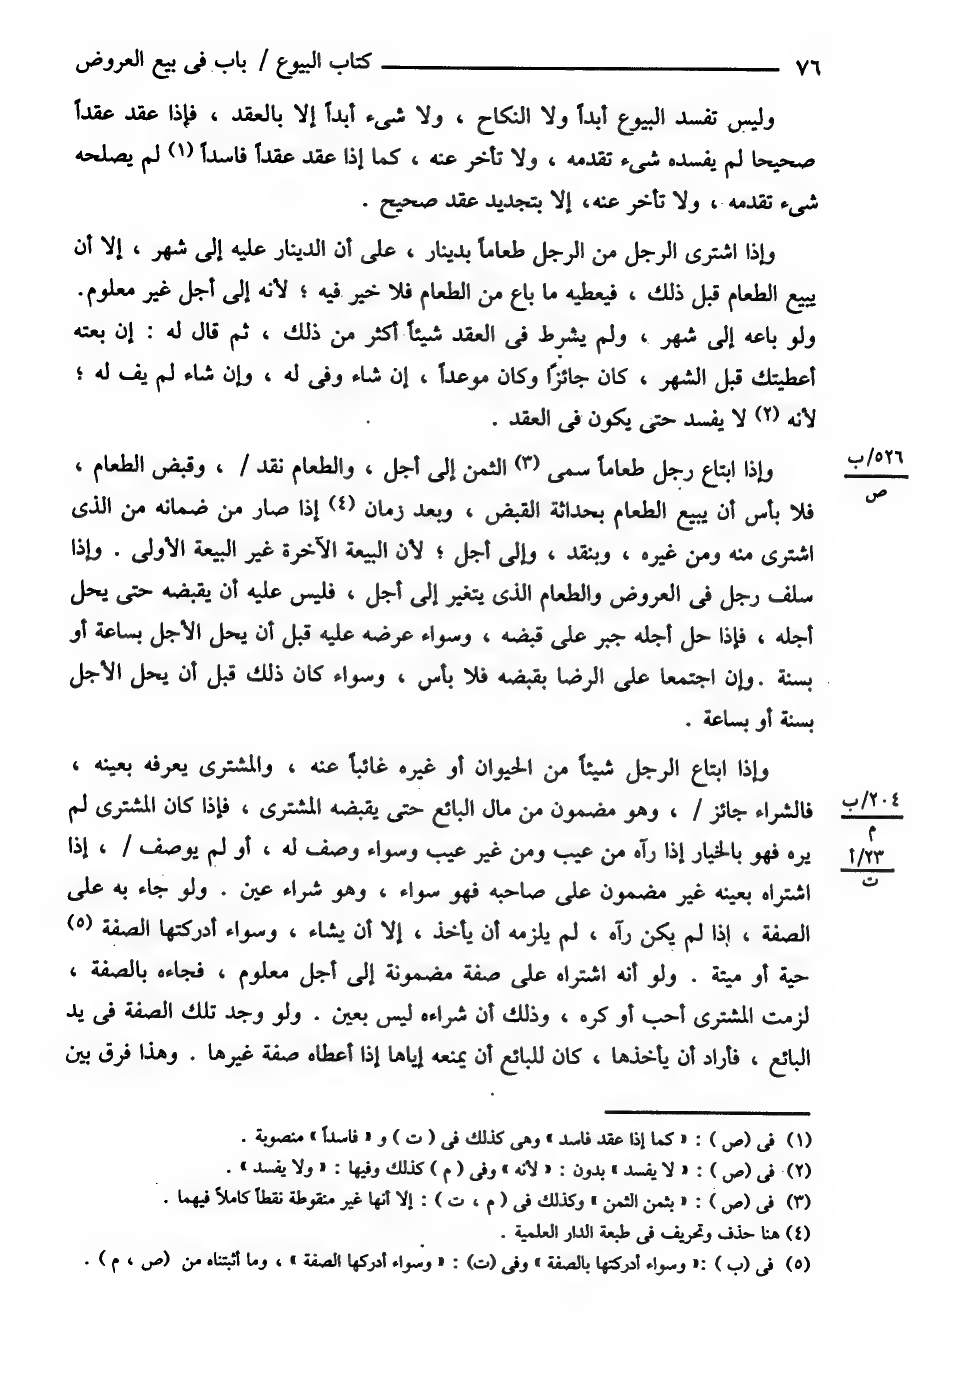 ٧٦ كتاب البيوع / باب فى بيع العروض
وليس تفسد البيوع أبداً ولا النكاح ، ولا شىء أبداً إلا بالعقد ، فإذا عقد عقداً
صحيحا لم يفسده شىء تقدمه ، ولا تأخر عنه ، كما إذا عقد عقداً فاسداً (١) لم يصلحه
شىء تقدمه ، ولا تأخر عنه، إلا بتجديد عقد صحيح .
وإذا اشترى الرجل من الرجل طعاماً بدينار ، على أن الدينار عليه إلى شهر ، إلا أن
يبيع الطعام قبل ذلك ، فيعطيه ما باع من الطعام فلا خير فيه ؛ لأنه إلى أجل غير معلوم.
ولو باعه إلى شهر ، ولم يشرط فى العقد شيئاً أكثر من ذلك ، ثم قال له : إن بعته
أعطيتك قبل الشهر ، كان جائزًا وكان موعداً ، إن شاء وفى له ، وإن شاء لم يف له ؛
لأنه (٢) لا يفسد حتى يكون فى العقد .
وإذا ابتاع رجل طعاماً سمى (٣) الثمن إلى أجل ، والطعام نقد / ، وقبض الطعام ،
٥٢٦/ب
ص
فلا بأس أن يبيع الطعام بحداثة القبض ، وبعد زمان (٤) إذا صار من ضمانه من الذى
اشترى منه ومن غيره ، وبنقد ، وإلى أجل ؛ لأن البيعة الآخرة غير البيعة الأولى . وإذا
سلف رجل فى العروض والطعام الذى يتغير إلى أجل ، فليس عليه أن يقبضه حتى يحل
أجله ، فإذا حل أجله جبر على قبضه ، وسواء عرضه عليه قبل أن يحل الأجل بساعة أو
بسنة . وإن اجتمعا على الرضا بقبضه فلا بأس ، وسواء كان ذلك قبل أن يحل الأجل
بسنة أو بساعة .
وإذا ابتاع الرجل شيئاً من الحيوان أو غيره غائباً عنه ، والمشترى يعرفه بعينه ،
فالشراء جائز / ، وهو مضمون من مال البائع حتى يقبضه المشترى ، فإذا كان المشترى لم
٢٠٤/ب
م
يره فهو بالخيار إذا رآه من عيب ومن غير عيب وسواء وصف له ، أو لم يوصف / ، إذا
٢٣/أ
ت
اشتراه بعينه غير مضمون على صاحبه فهو سواء ، وهو شراء عين . ولو جاء به على
الصفة ، إذا لم يكن رآه ، لم يلزمه أن يأخذ ، إلا أن يشاء ، وسواء أدركتها الصفة (٥)
حية أو ميتة . ولو أنه اشتراه على صفة مضمونة إلى أجل معلوم ، فجاءه بالصفة ،
لزمت المشترى أحب أو كره ، وذلك أن شراءه ليس بعين . ولو وجد تلك الصفة فى يد
البائع ، فأراد أن يأخذها ، كان للبائع أن يمنعه إياها إذا أعطاه صفة غيرها . وهذا فرق بين
(١) فى (ص) : « كما إذا عقد فاسد » وهى كذلك فى ( ت ) و « فاسداً » منصوبة .
(٢) فى (ص) : « لا يفسد » بدون : « لأنه » وفى ( م ) كذلك وفيها : « ولا يفسد » .
(٣) فى (ص) : « بثمن الثمن » وكذلك فى ( م ، ت ) : إلا أنها غير منقوطة نقطاً كاملاً فيهما .
(٤) هنا حذف وتحريف فى طبعة الدار العلمية .
(٥) فى (ب ) :« وسواء أدركتها بالصفة » وفى (ت) : « وسواء أدركها الصفة » ، وما أثبتناه من (ص ، م ) .